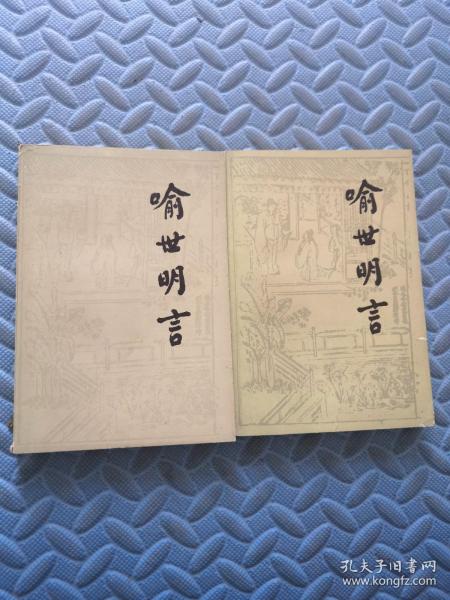 喻世明言
喻世明言
孔夫子旧书网
www.kongfz.com